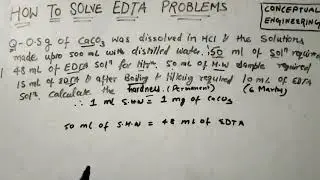 HOW TO SOLVE EDTA PROBLEMS
CONCEPTUAL
ENGINEERING
Q- 0.5g of CaCO3 was dissolved in HCl & the Solutions
made upto 500 mL with distilled water. 50 ml of Solⁿ required
48 ml of EDTA solⁿ for titrⁿ. 50 ml of H.W Sample required
15 ml of EDTA & after Boiling & filtering required 10 mL of EDTA
Solⁿ. Calculate the hardness. (Permanent) (6 Marks)
∴ 1 ml S.H.W = 1 mg of CaCO3
50 ml of S.H.W = 48 ml of EDTA